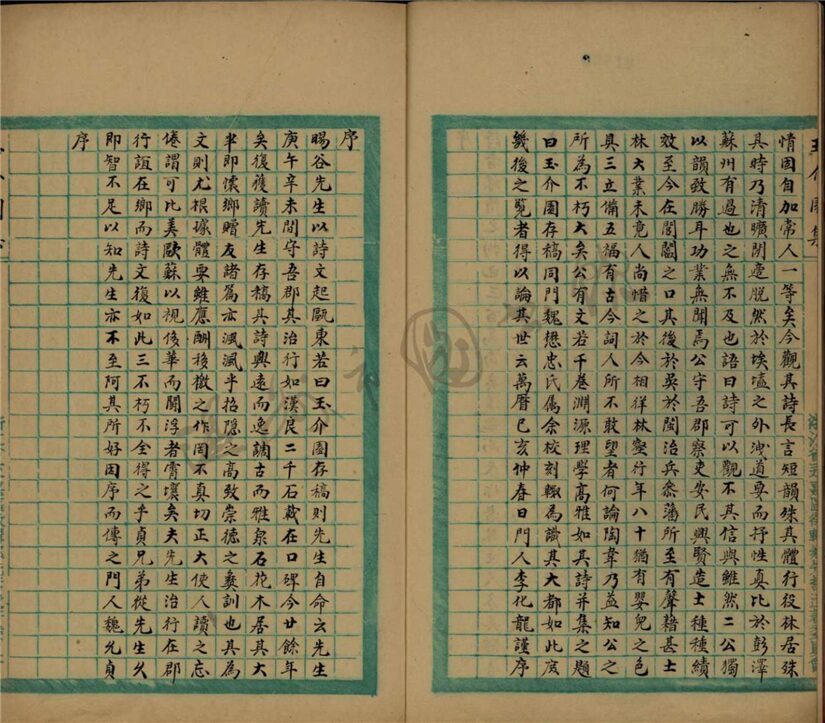 情固自加常人一等矣今觀其詩長言短韻殊其體行役林居殊
其時乃清曠閒遠脫然於埃壒之外洩道要而抒性真比於彭澤
蘇州有過也之無不及也語曰詩可以觀不其信與雖然二公獨
以韻致勝耳功業無聞焉公守吾郡察吏安民興賢造士種種績
效至今在閭閻之口其後於吳於閩治兵叅藩所至有聲藉甚士
林大業未竟人尚惜之於今相徉林壑行年八十猶有嬰兒之色
具三立備五福有古今詞人所不敢望者何論陶韋乃益知公之
所為不朽大矣公有文若千卷淵源理學高雅如其詩并集之題
曰玉介園存稿同門魏懋忠氏属余校刻輙為識其大都如此庋
幾後之覽者得以論其世云萬曆己亥仲春日門人李化龍謹序
序
暘谷先生以詩文起甌東若曰玉介園存稿則先生自命云先生
庚午辛未間守吾郡其治行如漢良二千石載在口碑今廿餘年
矣復獲讀先生存稿其詩興遠而逸調古而雅泉石花木居其大
半即懷鄉贈友諸篇亦渢渢乎招隱之高致崇德之彜訓也其為
文則尤根據體要雖應酬移檄之作罔不真切正大使人讀之忘
倦謂可比美歐蘇以視後華而閒浮者霄壤矣夫先生治行在郡
行誼在鄉而詩文復如此三不朽不全得之乎貞兄弟從先生久
即智不足以知先生亦不至阿其所好因序而傳之門人魏允貞
序